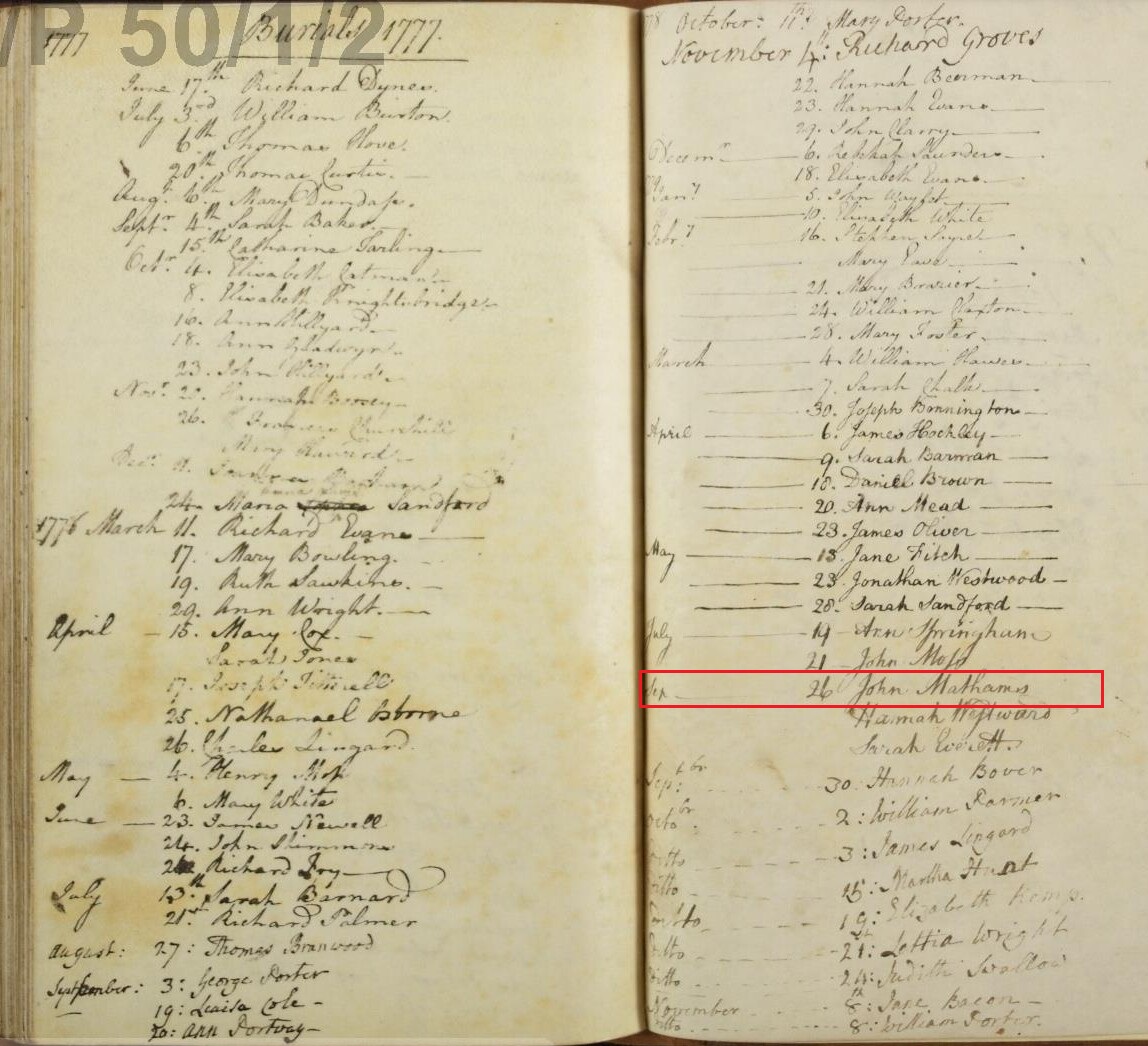 /P 50/1/2
1777 Burials 1777.
June 17.th Richard Dynes.
July 3.rd William Burton.
6th Thomas Hove.
20.th Thomas Curtis.
Augt. 6.th Mary Dundass.
Septr. 4.th Sarah Baker.
15.th Catharine Tarling
Octr. 4. Elisabeth Catman
8. Elisabeth Knightsbridge
16. Ann Hillyard
18. Ann Gladwyn
23. John Hillyard
Novr. 20. Hannah Boosey
26. Frances Churchill
Mary Howard
Decr.
24. Maria Sandford
1778 March 11. Richard Evans
17. Mary Bowling.
19. Ruth Sawkins.
29. Ann Wright.
April 15. Mary Cox.
Sarah Jones
17. Joseph Titterell
25. Nathanael Osborne
26. Charles Lingard.
May 4. Henry Mop
6. Mary White
June 23. James Newell
24. John Slimmons
Richard Fry
July 13.th Sarah Barnard
21st Richard Palmer
august: 27: Thomas Branwood
September: 3: George Porter
19: Luaisa Cole
20: Ann Portway
78 October: 11th: Mary Porter.
November 4th: Richard Groves
22. Hannah Beerman
23. Hannah Evans
29. John Clarry
Decemr 6. Rebekah Saunders
18. Elisabeth Evans
79 Jany 5. John Waylet
10. Elisabeth White
Febry 16. Stephen Sayer
Mary Eave
21. Mary Brazier
24. William Claxton
28. Mary Foster
March 4. William Hawes
7. Sarah Chalk
30. Joseph Bonnington
April 6. James Hockley
9. Sarah Barman
10. Daniel Brown
20. Ann Mead
23. James Oliver
May 13. Jane Fitch
23. Jonathan Westwood
28. Sarah Sandford
July 19 Ann Springham
21 John Moss
Sep 26 John Mathams
Hannah Westward
Sarah Everett
Sept:br 30. Hannah Bover
Octobr 2: William Farmer
Ditto 3: James Lingard
Ditto 15: Martha Hunt
Ditto 19: Elizabeth Kemp.
Ditto 21st: Lettia Wright
Ditto 24: Judith Swallow
November 8th: Jane Bacon
Ditto 8: William Porter.